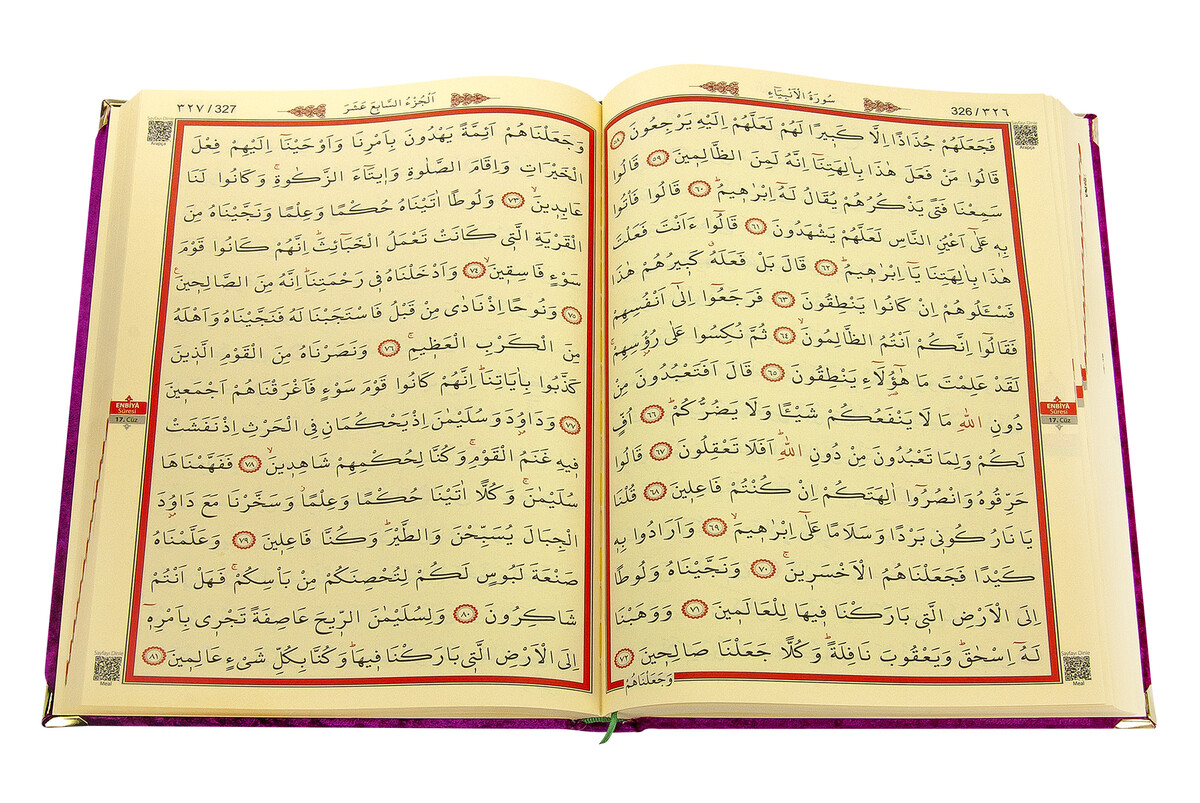 سُورَةُ الْاَنْبِيَاءِ
326 / ٣٢٦
فَجَعَلَهُمْ جُذَاذًا اِلَّا كَبِيرًا لَهُمْ لَعَلَّهُمْ اِلَيْهِ يَرْجِعُونَ ﴿٥٨﴾
قَالُوا مَنْ فَعَلَ هٰذَا بِاٰلِهَتِنَٓا اِنَّهُ لَمِنَ الظَّالِمِينَ ﴿٥٩﴾ قَالُوا
سَمِعْنَا فَتًى يَذْكُرُهُمْ يُقَالُ لَهُٓ اِبْرٰهِيمُۜ ﴿٦٠﴾ قَالُوا فَأْتُوا
بِهِ عَلٰٓى اَعْيُنِ النَّاسِ لَعَلَّهُمْ يَشْهَدُونَ ﴿٦١﴾ قَالُٓوا ءَاَنْتَ فَعَلْتَ
هٰذَا بِاٰلِهَتِنَا يَٓا اِبْرٰهِيمُۜ ﴿٦٢﴾ قَالَ بَلْ فَعَلَهُۗ كَبِيرُهُمْ هٰذَا
فَسْـَٔلُوهُمْ اِنْ كَانُوا يَنْطِقُونَ ﴿٦٣﴾ فَرَجَعُٓوا اِلٰٓى اَنْفُسِهِمْ
فَقَالُٓوا اِنَّكُمْ اَنْتُمُ الظَّالِمُونَۙ ﴿٦٤﴾ ثُمَّ نُكِسُوا عَلٰى رُؤُ۫سِهِمْۚ
لَقَدْ عَلِمْتَ مَا هٰٓؤُ۬لَٓاءِ يَنْطِقُونَ ﴿٦٥﴾ قَالَ اَفَتَعْبُدُونَ مِنْ
دُونِ اللّٰهِ مَا لَا يَنْفَعُكُمْ شَيْـًٔا وَلَا يَضُرُّكُمْۜ ﴿٦٦﴾ اُفٍّ
لَكُمْ وَلِمَا تَعْبُدُونَ مِنْ دُونِ اللّٰهِۜ اَفَلَا تَعْقِلُونَ ﴿٦٧﴾ قَالُوا
حَرِّقُوهُ وَانْصُرُٓوا اٰلِهَتَكُمْ اِنْ كُنْتُمْ فَاعِلِينَ ﴿٦٨﴾ قُلْنَا
يَا نَارُ كُونِي بَرْدًا وَسَلَامًا عَلٰٓى اِبْرٰهِيمَۙ ﴿٦٩﴾ وَاَرَادُوا بِهِ
كَيْدًا فَجَعَلْنَاهُمُ الْاَخْسَرِينَۚ ﴿٧٠﴾ وَنَجَّيْنَاهُ وَلُوطًا
اِلَى الْاَرْضِ الَّتِي بَارَكْنَا فِيهَا لِلْعَالَمِينَ ﴿٧١﴾ وَوَهَبْنَا
لَهُٓ اِسْحٰقَۜ وَيَعْقُوبَ نَافِلَةًۜ وَكُلًّا جَعَلْنَا صَالِحِينَ ﴿٧٢﴾
وَجَعَلْنَاهُمْ
Sayfayı Dinle
Arapça
ENBİYÂ
Sûresi
17. Cüz
Sayfayı Dinle
Meal
اَلْجُزْءُ السَّابِعَ عَشَرَ
٣٢٧ / 327
وَجَعَلْنَاهُمْ اَئِمَّةً يَهْدُونَ بِاَمْرِنَا وَاَوْحَيْنَٓا اِلَيْهِمْ فِعْلَ
الْخَيْرَاتِ وَاِقَامَ الصَّلٰوةِ وَا۪يتَٓاءَ الزَّكٰوةِۚ وَكَانُوا لَنَا
عَابِدِينَۙ ﴿٧٣﴾ وَلُوطًا اٰتَيْنَاهُ حُكْمًا وَعِلْمًا وَنَجَّيْنَاهُ مِنَ
الْقَرْيَةِ الَّتِي كَانَتْ تَعْمَلُ الْخَبَٓائِثَۜ اِنَّهُمْ كَانُوا قَوْمَ
سَوْءٍ فَاسِقِينَۙ ﴿٧٤﴾ وَاَدْخَلْنَاهُ فِي رَحْمَتِنَاۜ اِنَّهُ مِنَ الصَّالِحِينَ۟
﴿٧٥﴾ وَنُوحًا اِذْ نَادٰى مِنْ قَبْلُ فَاسْتَجَبْنَا لَهُ فَنَجَّيْنَاهُ وَاَهْلَهُ
مِنَ الْكَرْبِ الْعَظِيمِۚ ﴿٧٦﴾ وَنَصَرْنَاهُ مِنَ الْقَوْمِ الَّذِينَ
كَذَّبُوا بِاٰيَاتِنَاۜ اِنَّهُمْ كَانُوا قَوْمَ سَوْءٍ فَاَغْرَقْنَاهُمْ اَجْمَعِينَ
﴿٧٧﴾ وَدَاوُ۫دَ وَسُلَيْمٰنَ اِذْ يَحْكُمَانِ فِي الْحَرْثِ اِذْ نَفَشَتْ
فِيهِ غَنَمُ الْقَوْمِۚ وَكُنَّا لِحُكْمِهِمْ شَاهِدِينَۙ ﴿٧٨﴾ فَفَهَّمْنَاهَا
سُلَيْمٰنَۚ وَكُلًّا اٰتَيْنَا حُكْمًا وَعِلْمًاۘ وَسَخَّرْنَا مَعَ دَاوُ۫دَ
الْجِبَالَ يُسَبِّحْنَ وَالطَّيْرَۜ وَكُنَّا فَاعِلِينَ ﴿٧٩﴾ وَعَلَّمْنَاهُ
صَنْعَةَ لَبُوسٍ لَكُمْ لِتُحْصِنَكُمْ مِنْ بَأْسِكُمْۚ فَهَلْ اَنْتُمْ
شَاكِرُونَ ﴿٨٠﴾ وَلِسُلَيْمٰنَ الرِّيحَ عَاصِفَةً تَجْرِي بِاَمْرِهِٓ
اِلَى الْاَرْضِ الَّتِي بَارَكْنَا فِيهَاۜ وَكُنَّا بِكُلِّ شَيْءٍ عَالِمِينَ ﴿٨١﴾
Sayfayı Dinle
Arapça
ENBİYÂ
Sûresi
17. Cüz
Sayfayı Dinle
Meal